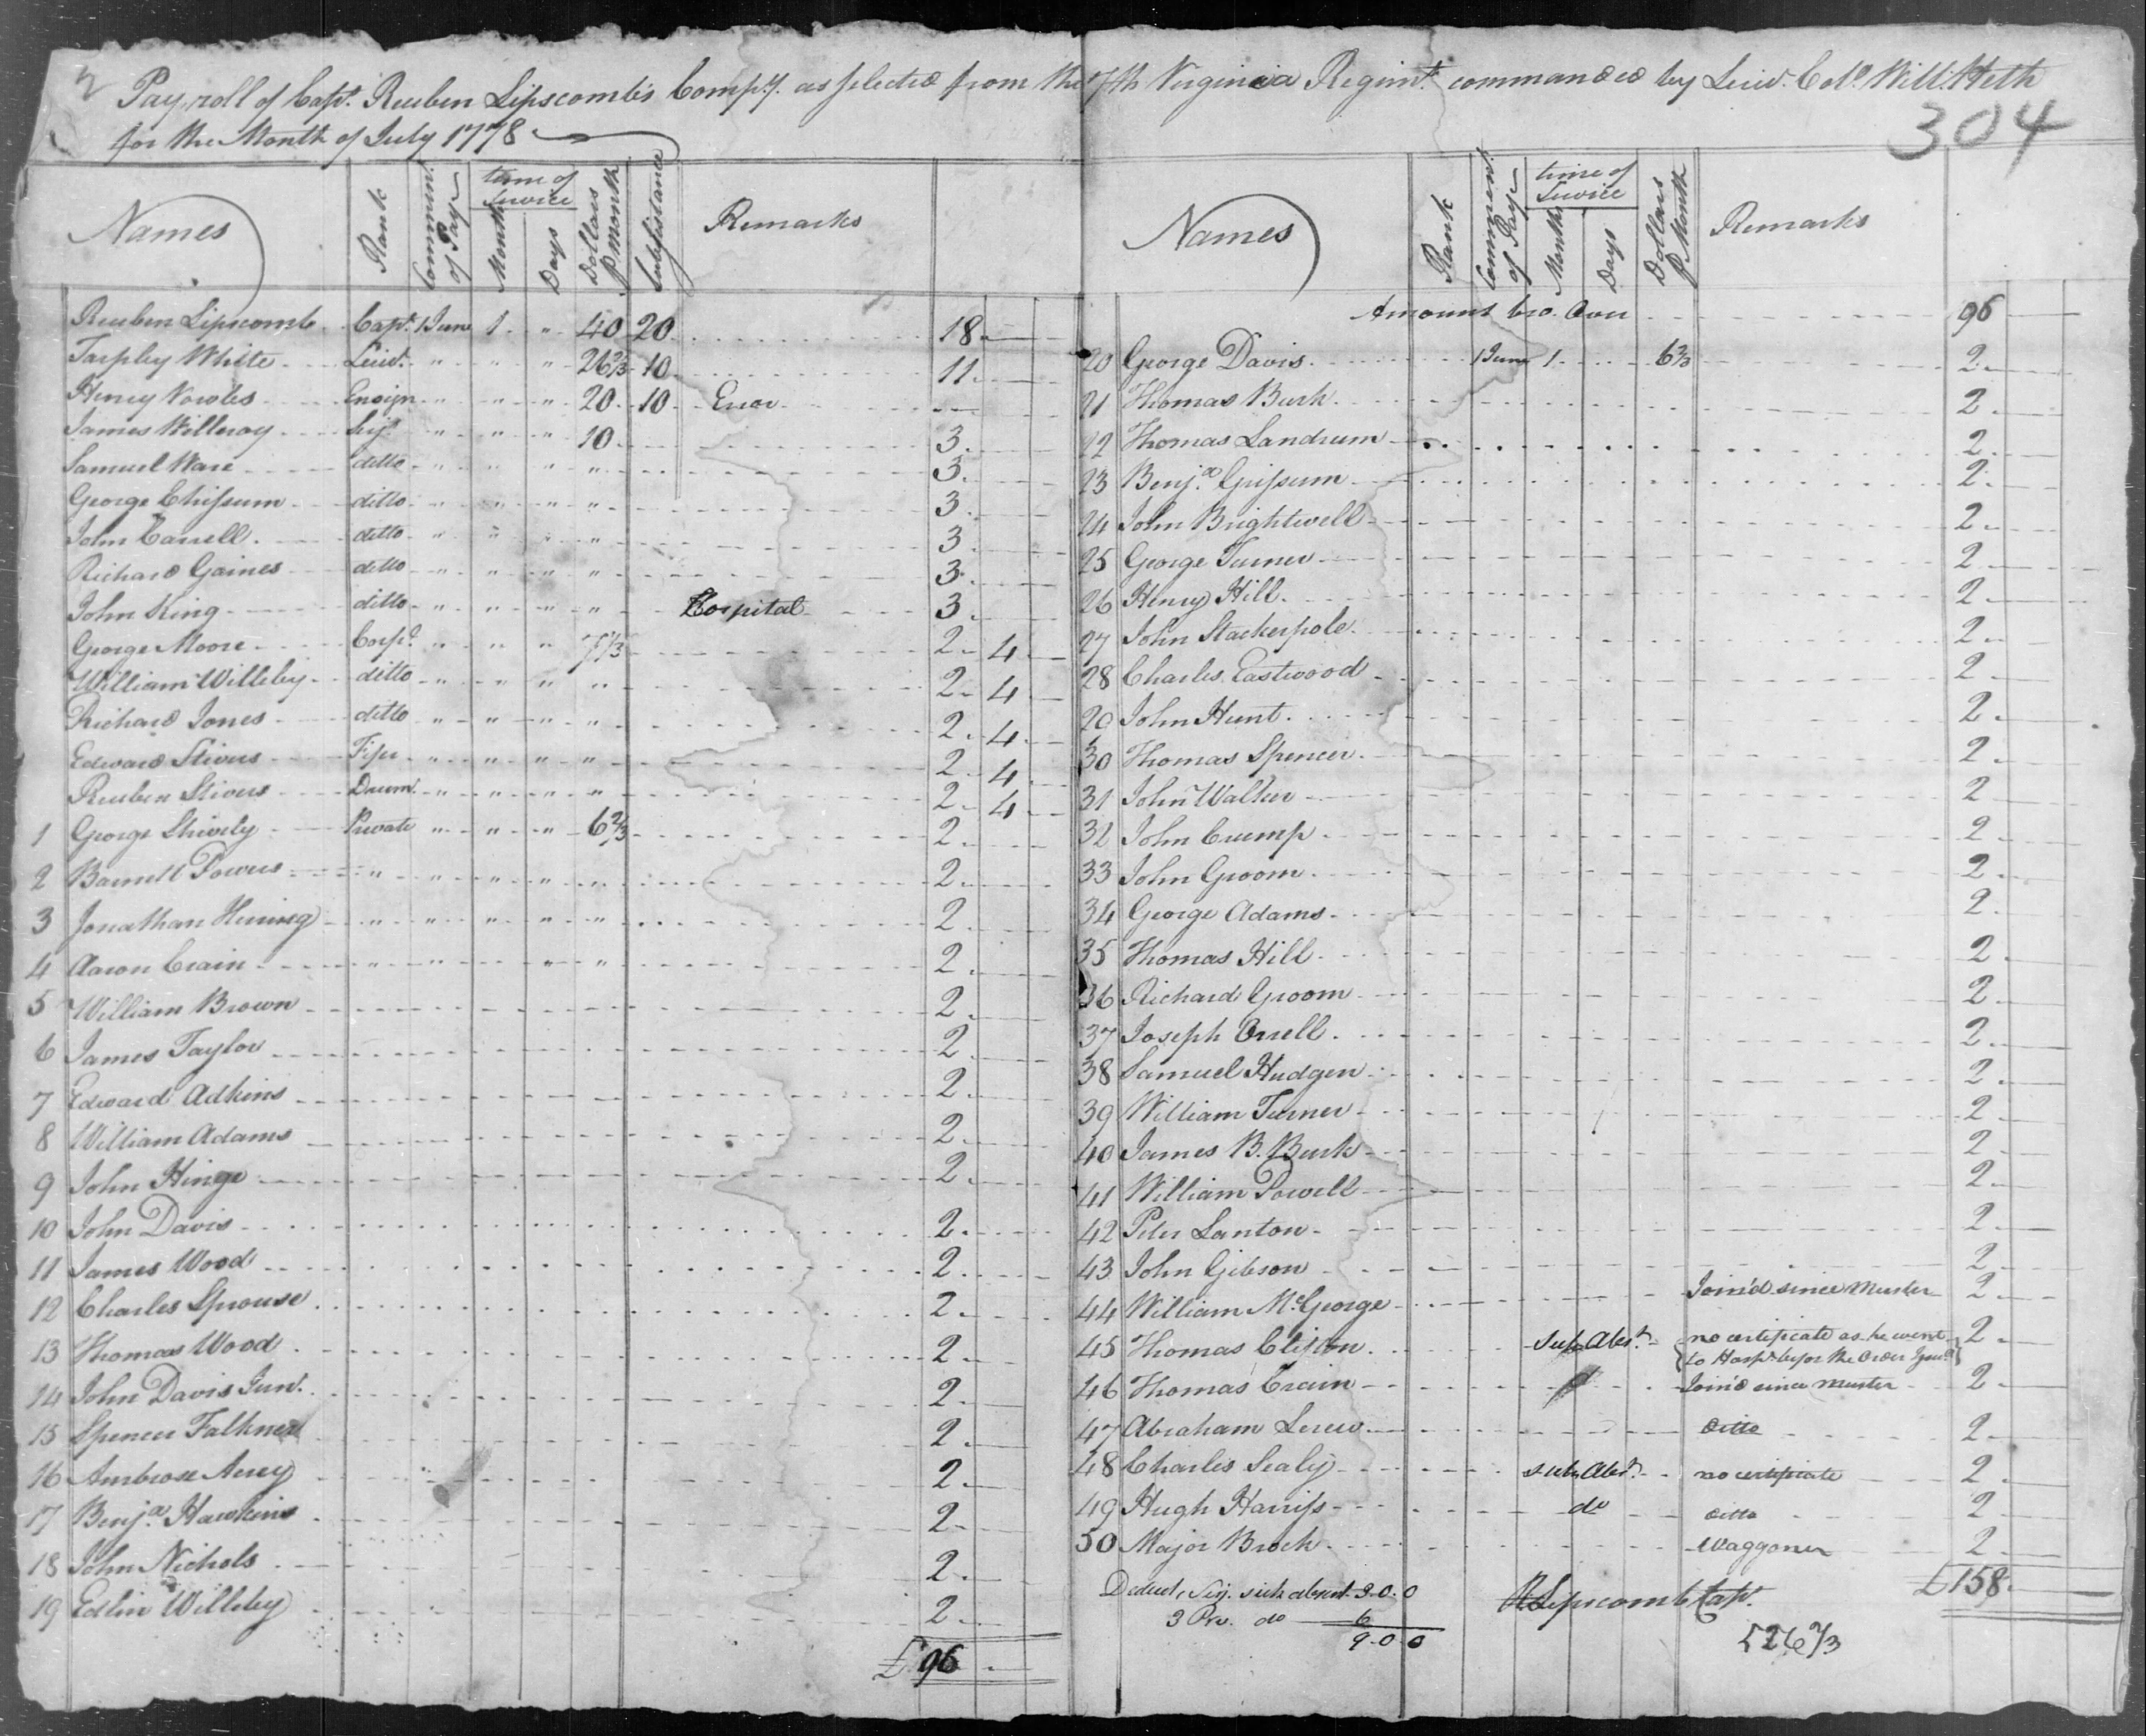 Pay roll of Capt. Reuben Lipscomb's Compy. as selected from the 7th Virginia Regimt. commanded by Lieut. Colo. Will: Heth
for the Month of July 1778
304
Names Rank Commenmt. of Pay time of Service Months Days Dollars P Month Subsistance Remarks
Reuben Lipscomb Capt. 1 June 1 " 40 20 18
Tarpley White Lieut. " " " 26 2/3 10 11
Henry Vowles Ensign " " " 20 10 Error
James Willeroy Serjt. " " " 10 3
Samuel Ware ditto " " " " 3
George Chissum ditto " " " " 3
John Carrell ditto " " " " 3
Richard Gaines ditto " " " " 3
John King ditto " " " " Hospital 3
George Moore Corpl. " " " 7 1/3 2 4
William Willeby ditto " " " " 2 4
Richard Jones ditto " " " " 2 4
Edward Stivers Fifer " " " " 2 4
Reuben Stivers Drumr. " " " " 2 4
1 George Shively Private " " " 6 2/3 2
2 Barnett Powers " " " " " 2
3 Jonathan Hening " " " " " 2
4 Aaron Crain " " " " 2
5 William Brown 2
6 James Taylor 2
7 Edward Adkins 2
8 William Adams 2
9 John Hinge 2
10 John Davis 2
11 James Wood 2
12 Charles Sprouse 2
13 Thomas Wood 2
14 John Davis Junr. 2
15 Spencer Falkner 2
16 Ambrose Arey 2
17 Benja. Hawkins 2
18 John Nichols 2
19 Edlin Willeby 2
£ 96
Names Rank Commenmt. of Pay time of Service Months Days Dollars P Month Remarks
Amount bro. Over 96
20 George Davis 1 June 1 6 2/3 2
21 Thomas Burk 2
22 Thomas Landrum 2
23 Benja. Grissum 2
24 John Brightwell 2
25 George Turner 2
26 Henry Hill 2
27 John Stackerpole 2
28 Charles Eastwood 2
29 John Hunt 2
30 Thomas Spencer 2
31 John Walker 2
32 John Crump 2
33 John Groom 2
34 George Adams 2
35 Thomas Hill 2
36 Richard Groom 2
37 Joseph Orrell 2
38 Samuel Hudgen 2
39 William Turner 2
40 James B. Burk 2
41 William Powell 2
42 Peter Lanton 2
43 John Gibson 2
44 William McGeorge Join'd since Muster 2
45 Thomas Clifton sick Abst. no certificate as he went 2
to Hospl. befor the Order
46 Thomas Crain Join'd since muster 2
47 Abraham Lerew ditto 2
48 Charles Sealy sick Abst. no certificate 2
49 Hugh Harriss do ditto 2
50 Major Brock Waggoner 2
Deduct, Serj. sick absent 3.0.0 RLipscomb Capt. £158
3 Prv. do 6
9.0.0
526 2/3